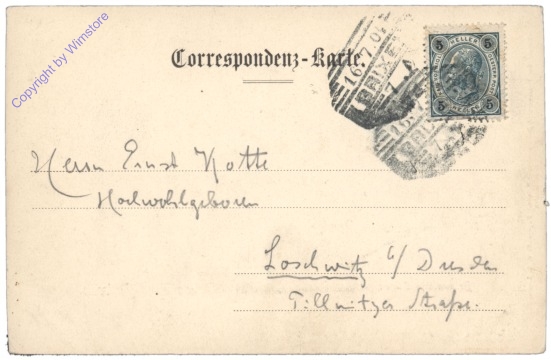 Copyright by Wimstore
Correspondenz-Karte.
5 HELLER 5
16/7 0
BRIXE
5 5
Herrn Ernst Kotte
Hochwohlgeboren
Loschwitz b/ Dresden
Pillnitzer Straße.